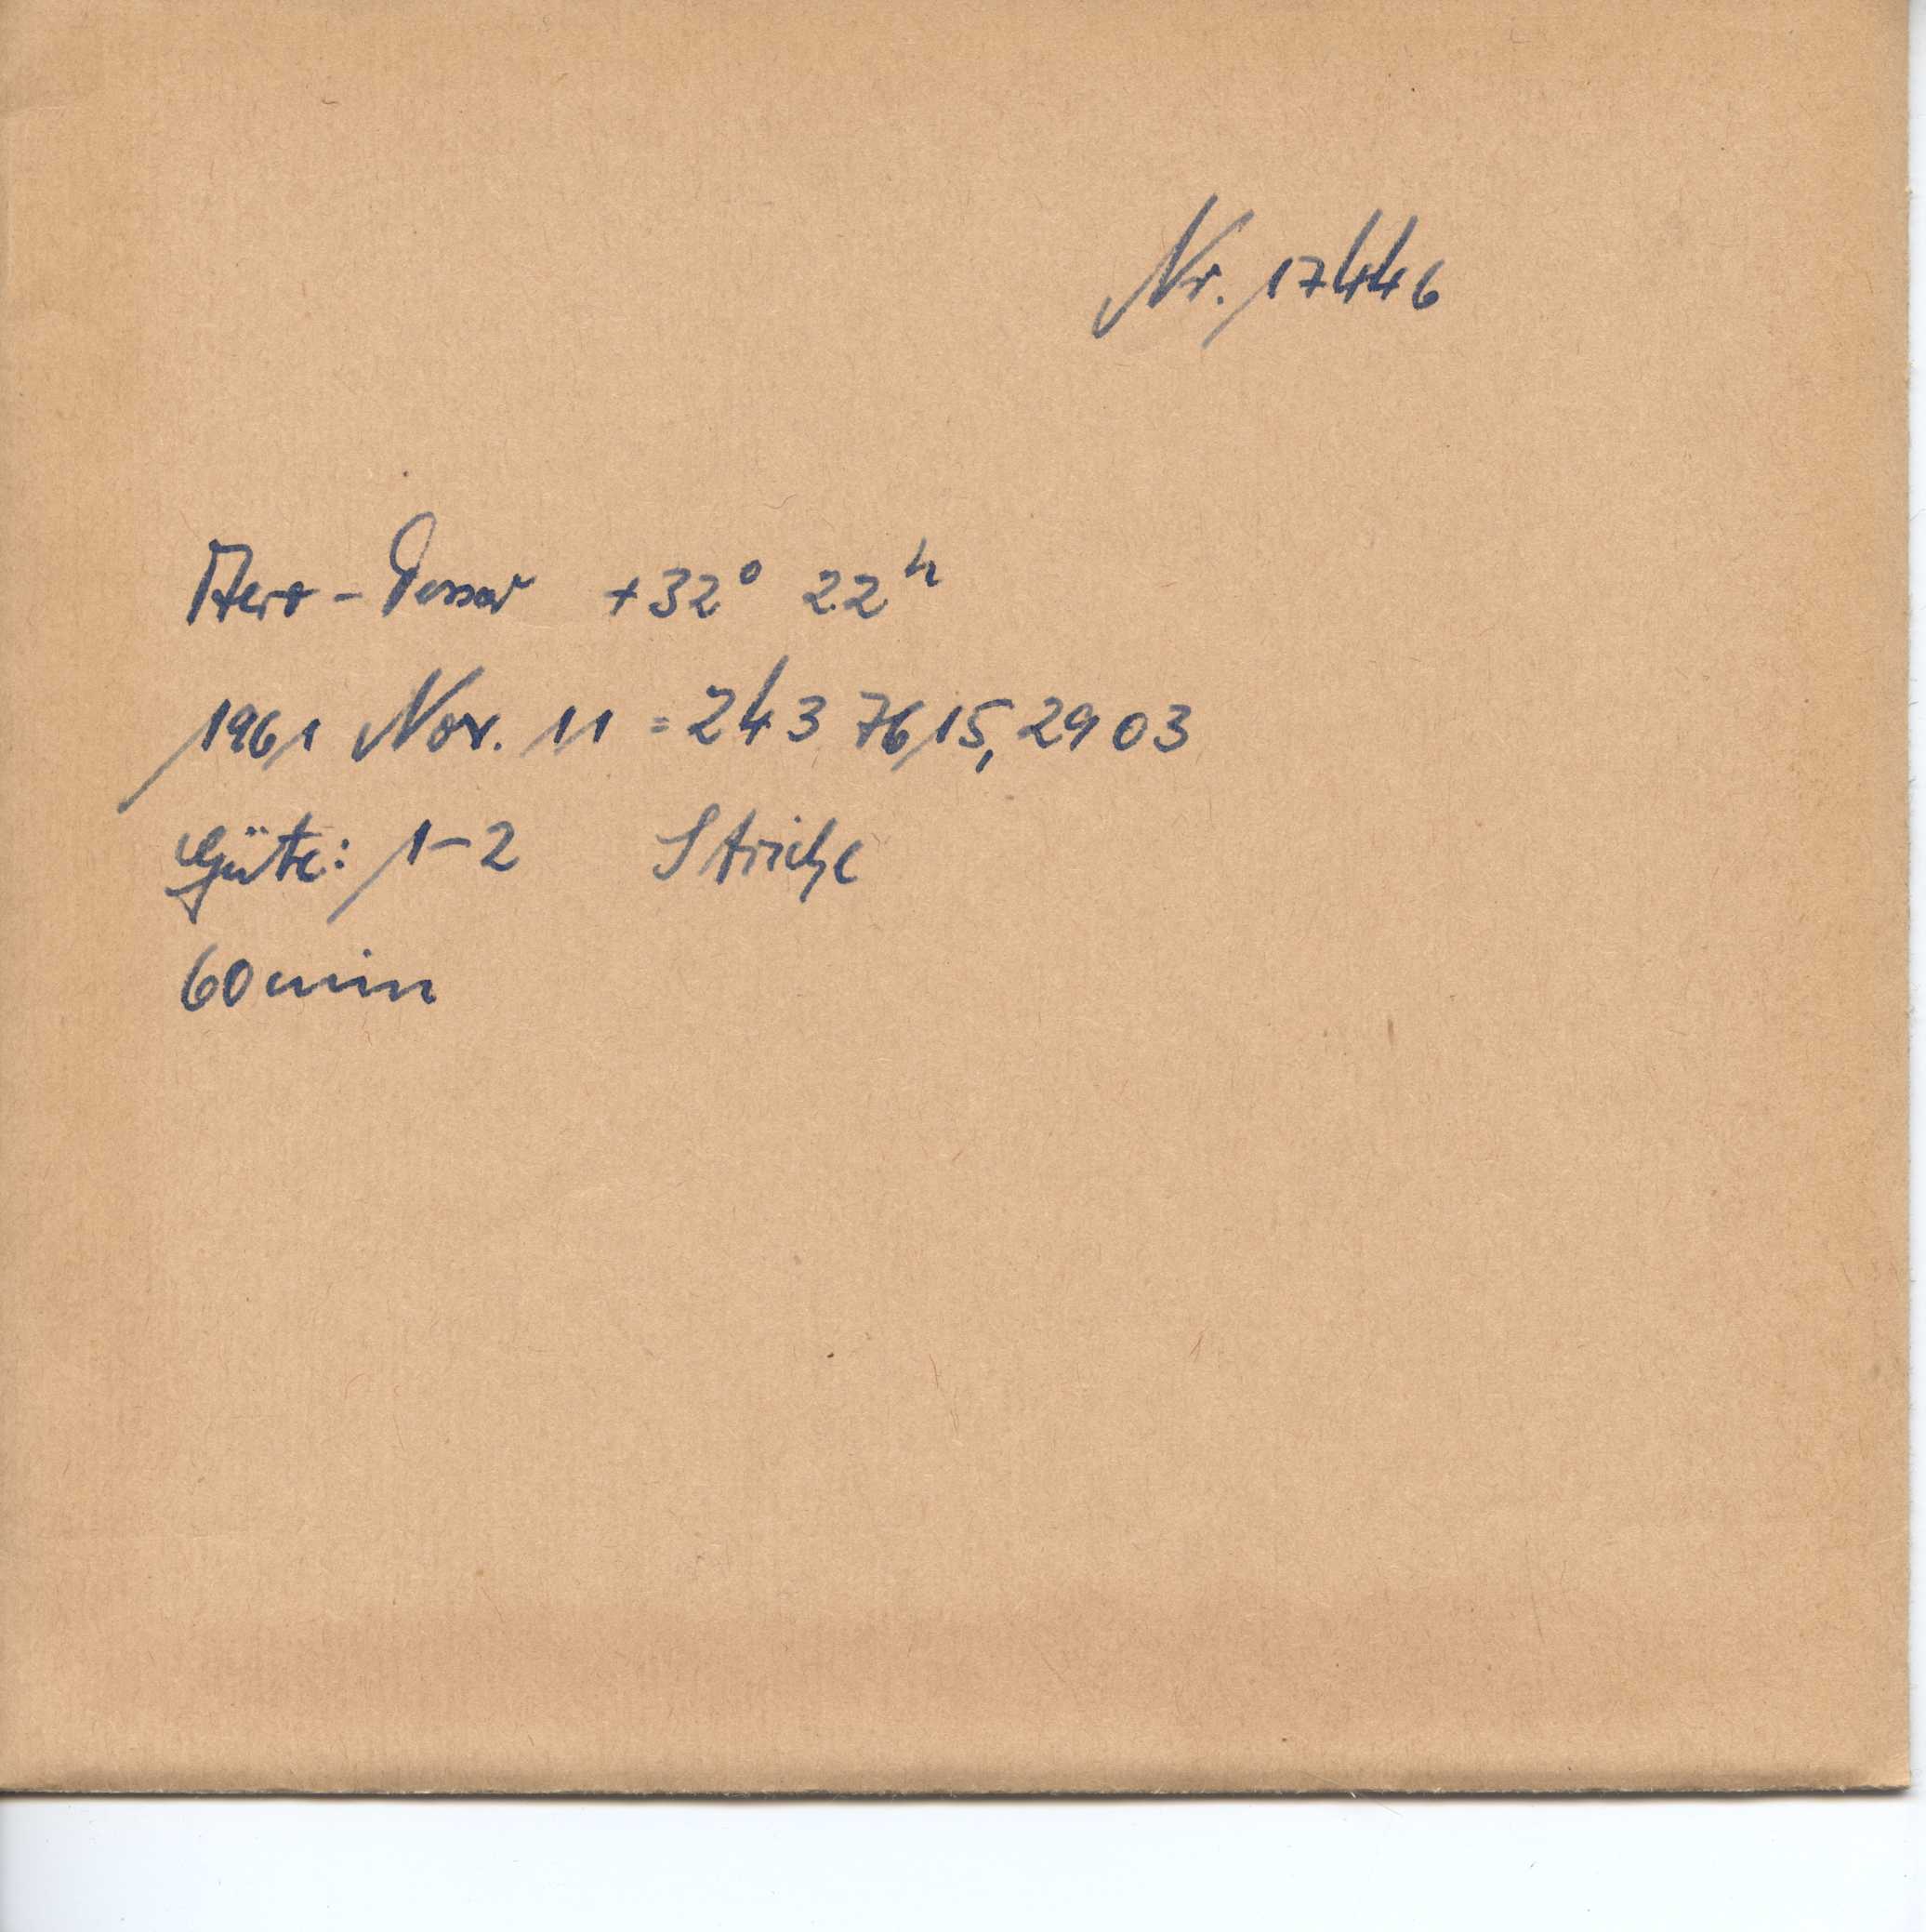 Nr. 17446
Aero-Tessar +32° 22ʰ
1961 Nov. 11 = 243 7615,2903
Güte: 1-2 Striche
60min